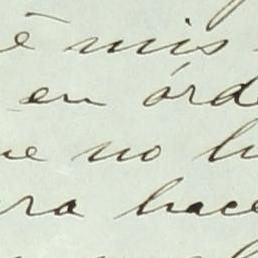 é mis
en órde
ue no h
ra hace